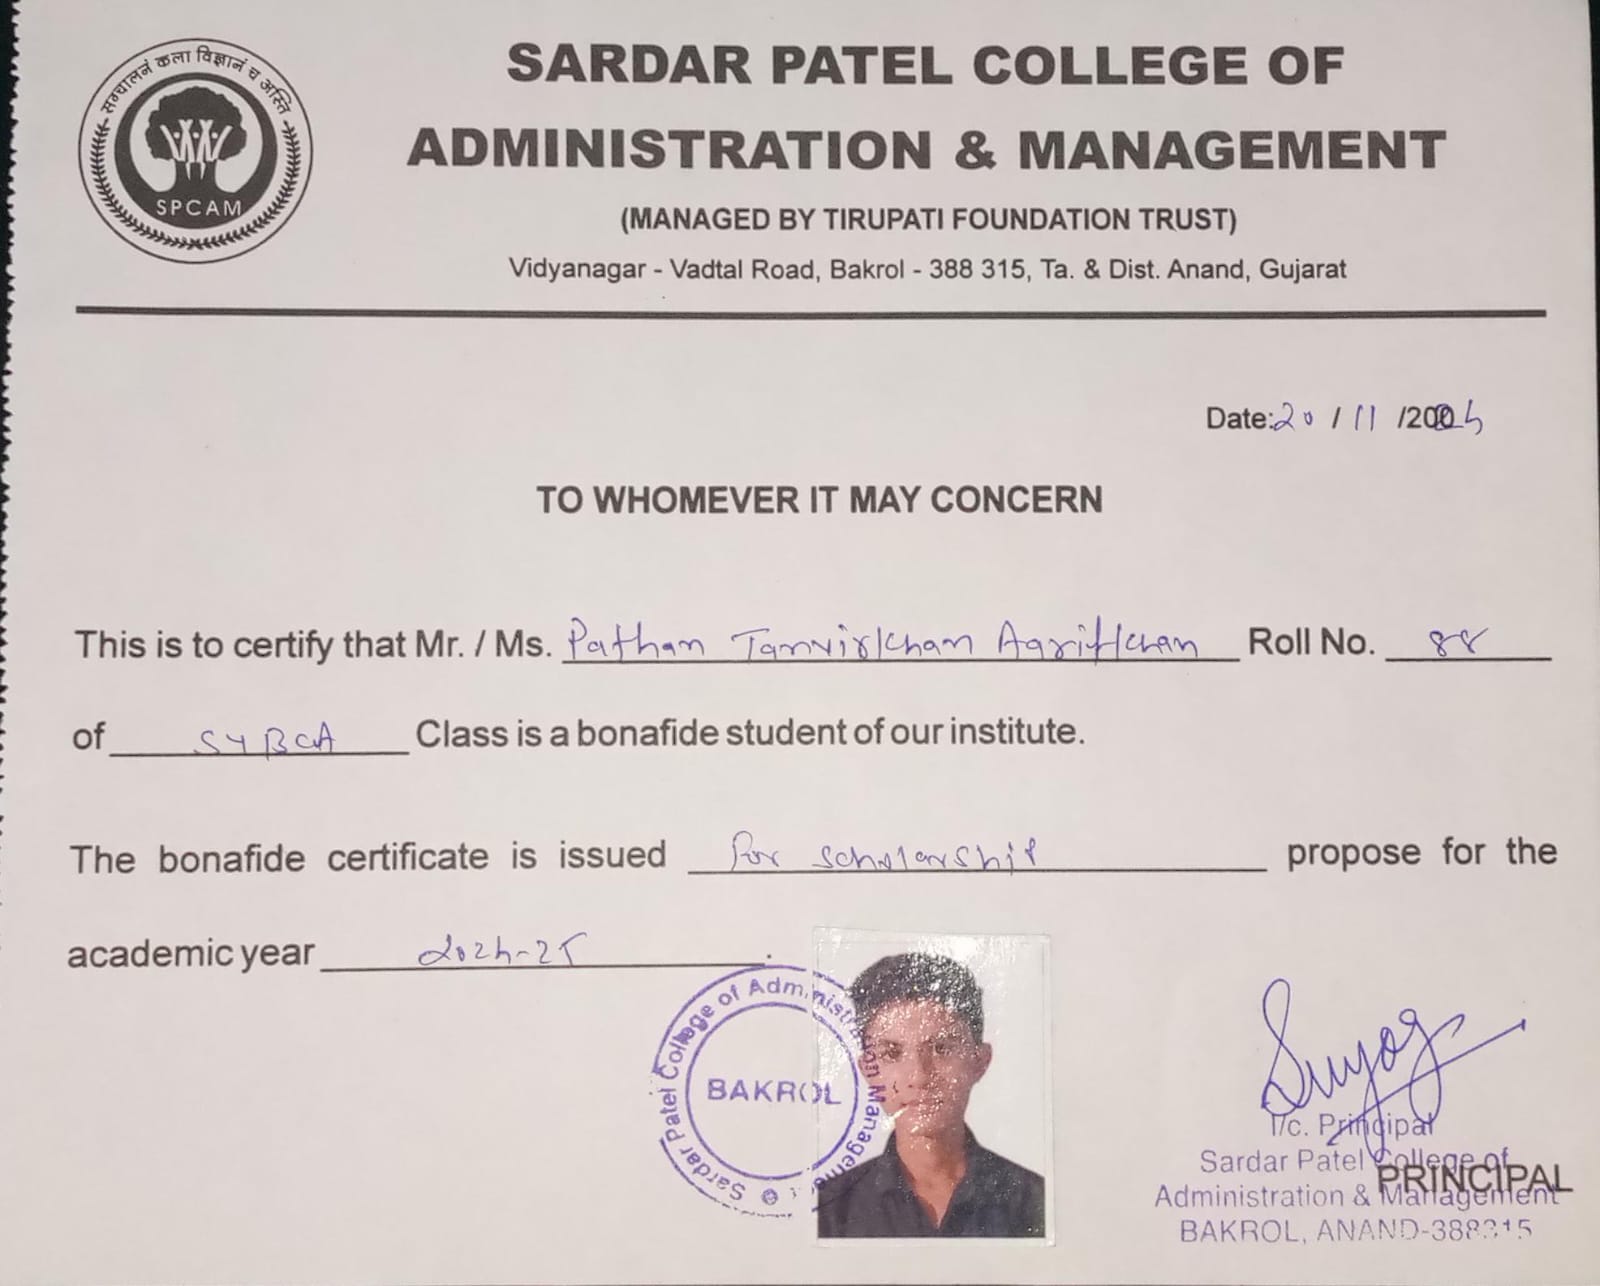 सञ्चालनं कला विज्ञानं च अस्ति
SPCAM
SARDAR PATEL COLLEGE OF
ADMINISTRATION & MANAGEMENT
(MANAGED BY TIRUPATI FOUNDATION TRUST)
Vidyanagar - Vadtal Road, Bakrol - 388 315, Ta. & Dist. Anand, Gujarat
Date: 20 / 11 /2024
TO WHOMEVER IT MAY CONCERN
This is to certify that Mr. / Ms. Pathan Tanvirkhan Aarifkhan Roll No. 88
of SYBCA Class is a bonafide student of our institute.
The bonafide certificate is issued for scholarship propose for the
academic year 2024-25.
Sardar Patel College of Administration Management
BAKROL
Suyog
I/c. Principal
Sardar Patel College of
PRINCIPAL
Administration & Management
BAKROL, ANAND-388315